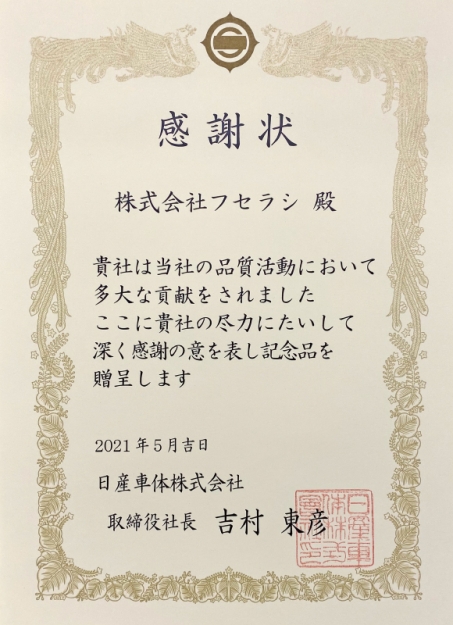 感謝状
株式会社フセラシ 殿
貴社は当社の品質活動において
多大な貢献をされました
ここに貴社の尽力にたいして
深く感謝の意を表し記念品を
贈呈します
2021年5月吉日
日産車体株式会社
取締役社長 吉村 東彦